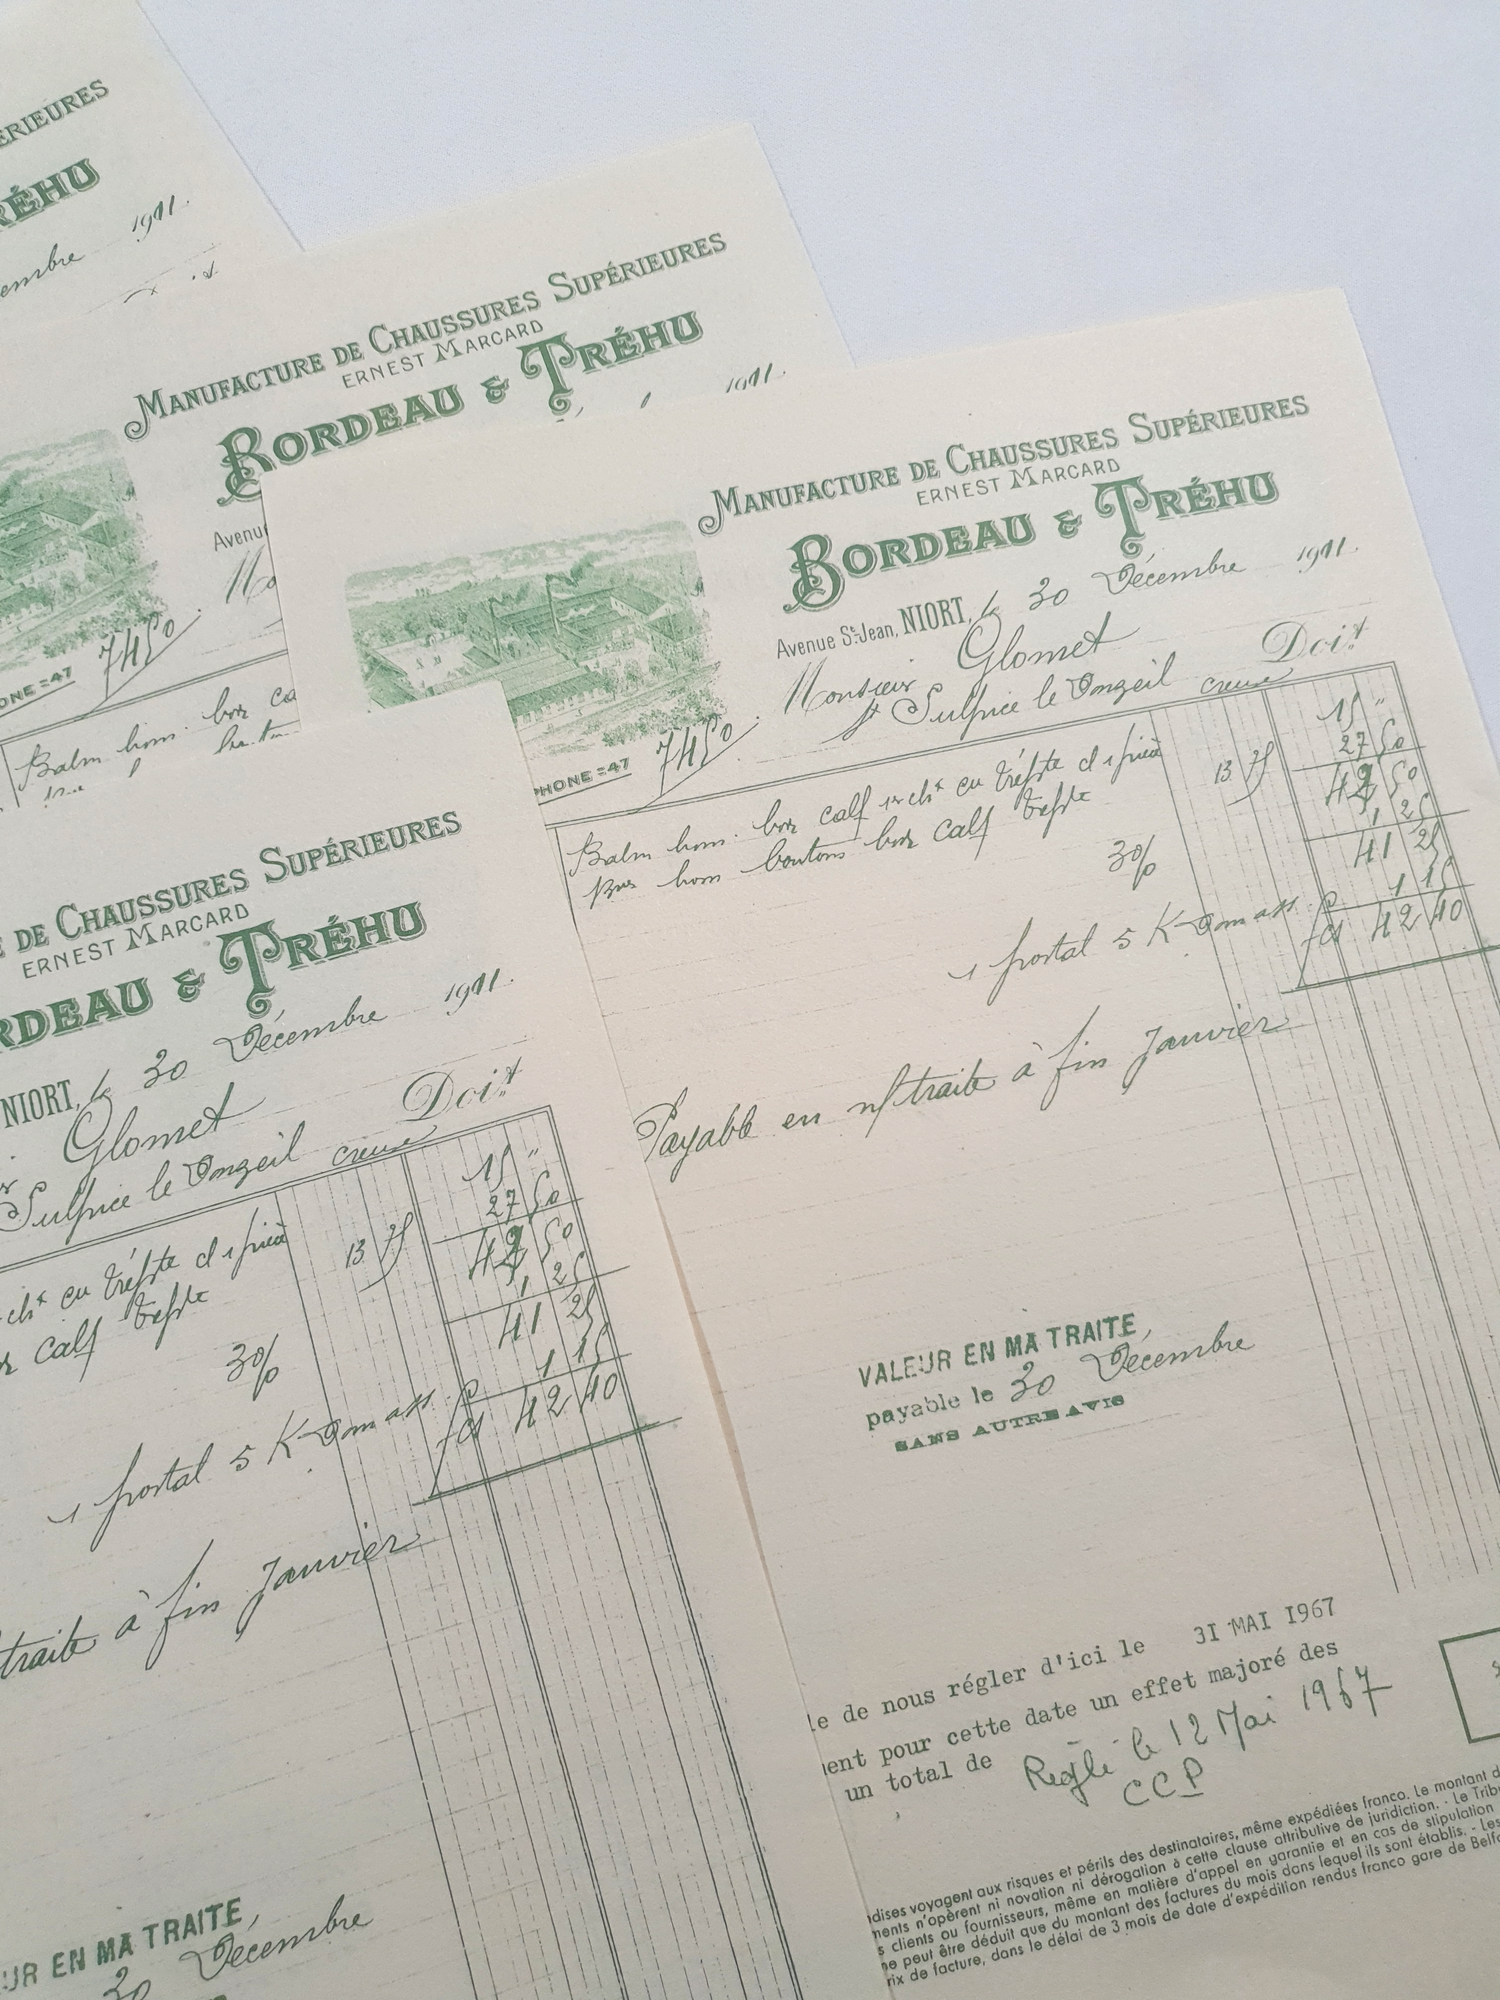 ÉRIEURES
RÉHU
embre 1911.
MANUFACTURE DE CHAUSSURES SUPÉRIEURES
ERNEST MARCARD
BORDEAU & TRÉHU
1911.
Avenu
Mo
ONE =47
7450
Balm hom. box ca
MANUFACTURE DE CHAUSSURES SUPÉRIEURES
ERNEST MARCARD
BORDEAU & TRÉHU
Avenue St. Jean, NIORT, le 30 Décembre 1911.
Monsieur Glomet
St Sulpice le Donzeil creuse Doit
PHONE =47
7450
Balm hom. box calf 13 75 15 "
hom boutons box calf 27 50
42 50
3% 1 25
41 25
1 postal 5 K 1 15
42 40
Payable en n/ traite à fin Janvier
VALEUR EN MA TRAITE,
payable le 30 Décembre
SANS AUTRE AVIS
le de nous régler d'ici le 31 MAI 1967
ent pour cette date un effet majoré des
un total de
Réglé le 12 Mai 1967
CCP
dises voyagent aux risques et périls des destinataires, même expédiées franco. Le montant d
ments n'opèrent ni novation ni dérogation à cette clause attributive de juridiction. - Le Tribu
s clients ou fournisseurs, même en matière d'appel en garantie et en cas de stipulation
ne peut être déduit que du montant des factures du mois dans lequel ils sont établis. - Les
rix de facture, dans le délai de 3 mois de date d'expédition rendus franco gare de Belfo
E DE CHAUSSURES SUPÉRIEURES
ERNEST MARCARD
RDEAU & TRÉHU
NIORT, le 30 Décembre 1911.
Glomet
Sulpice le Donzeil creuse Doit
13 75 15 "
calf 27 50
42 50
3% 1 25
41 25
1 postal 5 K 1 15
42 40
traite à fin Janvier
UR EN MA TRAITE,
30 Décembre